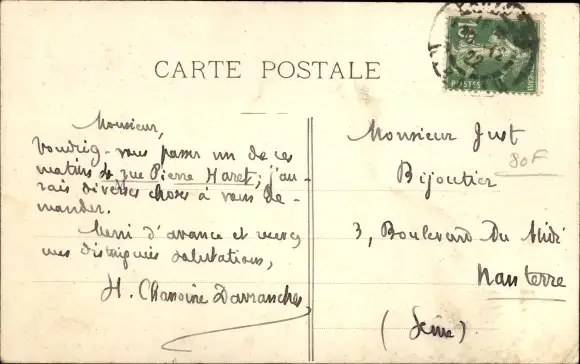 CARTE POSTALE
Monsieur,
Voudriez-vous passer un de ces
matins 4 rue Pierre Haret; j'au-
rais diverses choses à vous de-
mander.
Merci d'avance et recevez
mes distinguées salutations,
H. Chanoine Davranches
Monsieur Just
80F
Bijoutier
3, Boulevard du Midi
Nanterre
(Seine)
POSTES